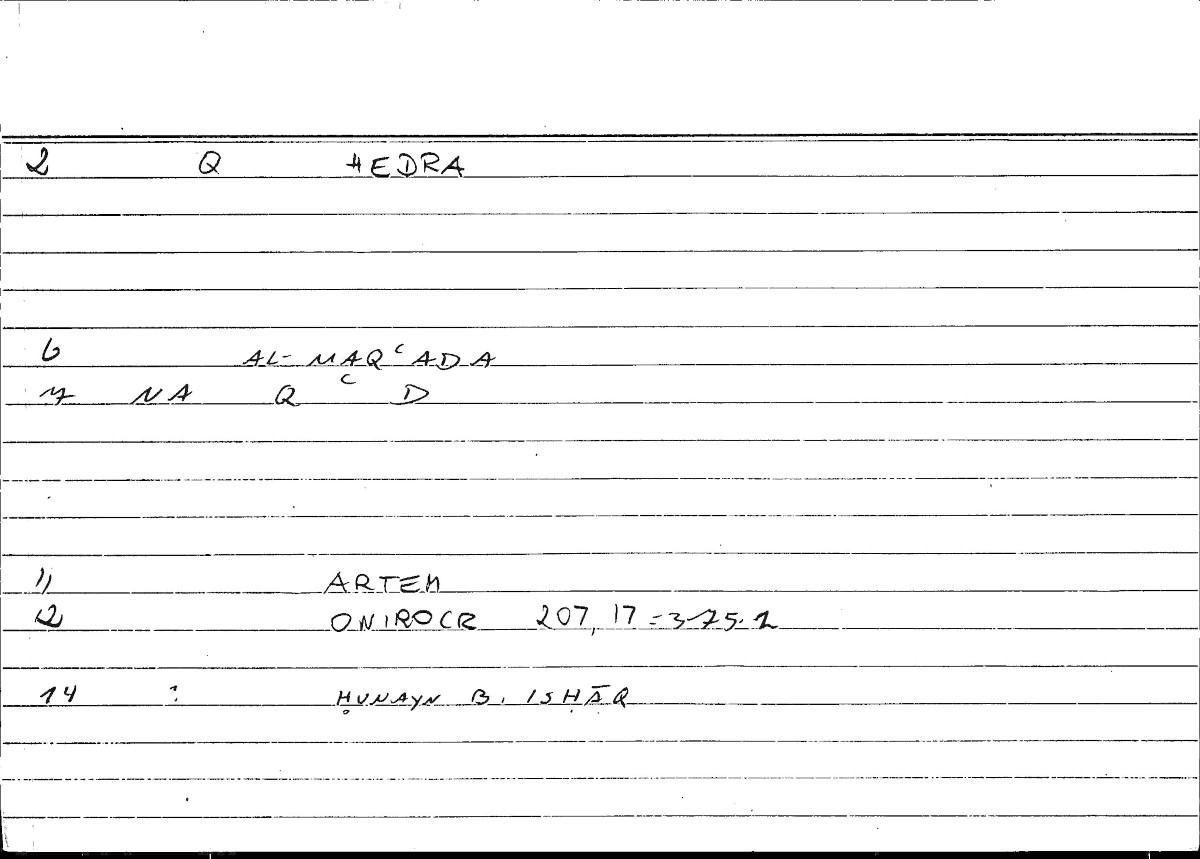 2 Q HEDRA
6 AL-MAQʿADA
7 NA Q ʿ D
11 ARTEM
12 ONIROCR 207, 17 = 375.1
14 : ḤUNAYN B. ISḤĀQ